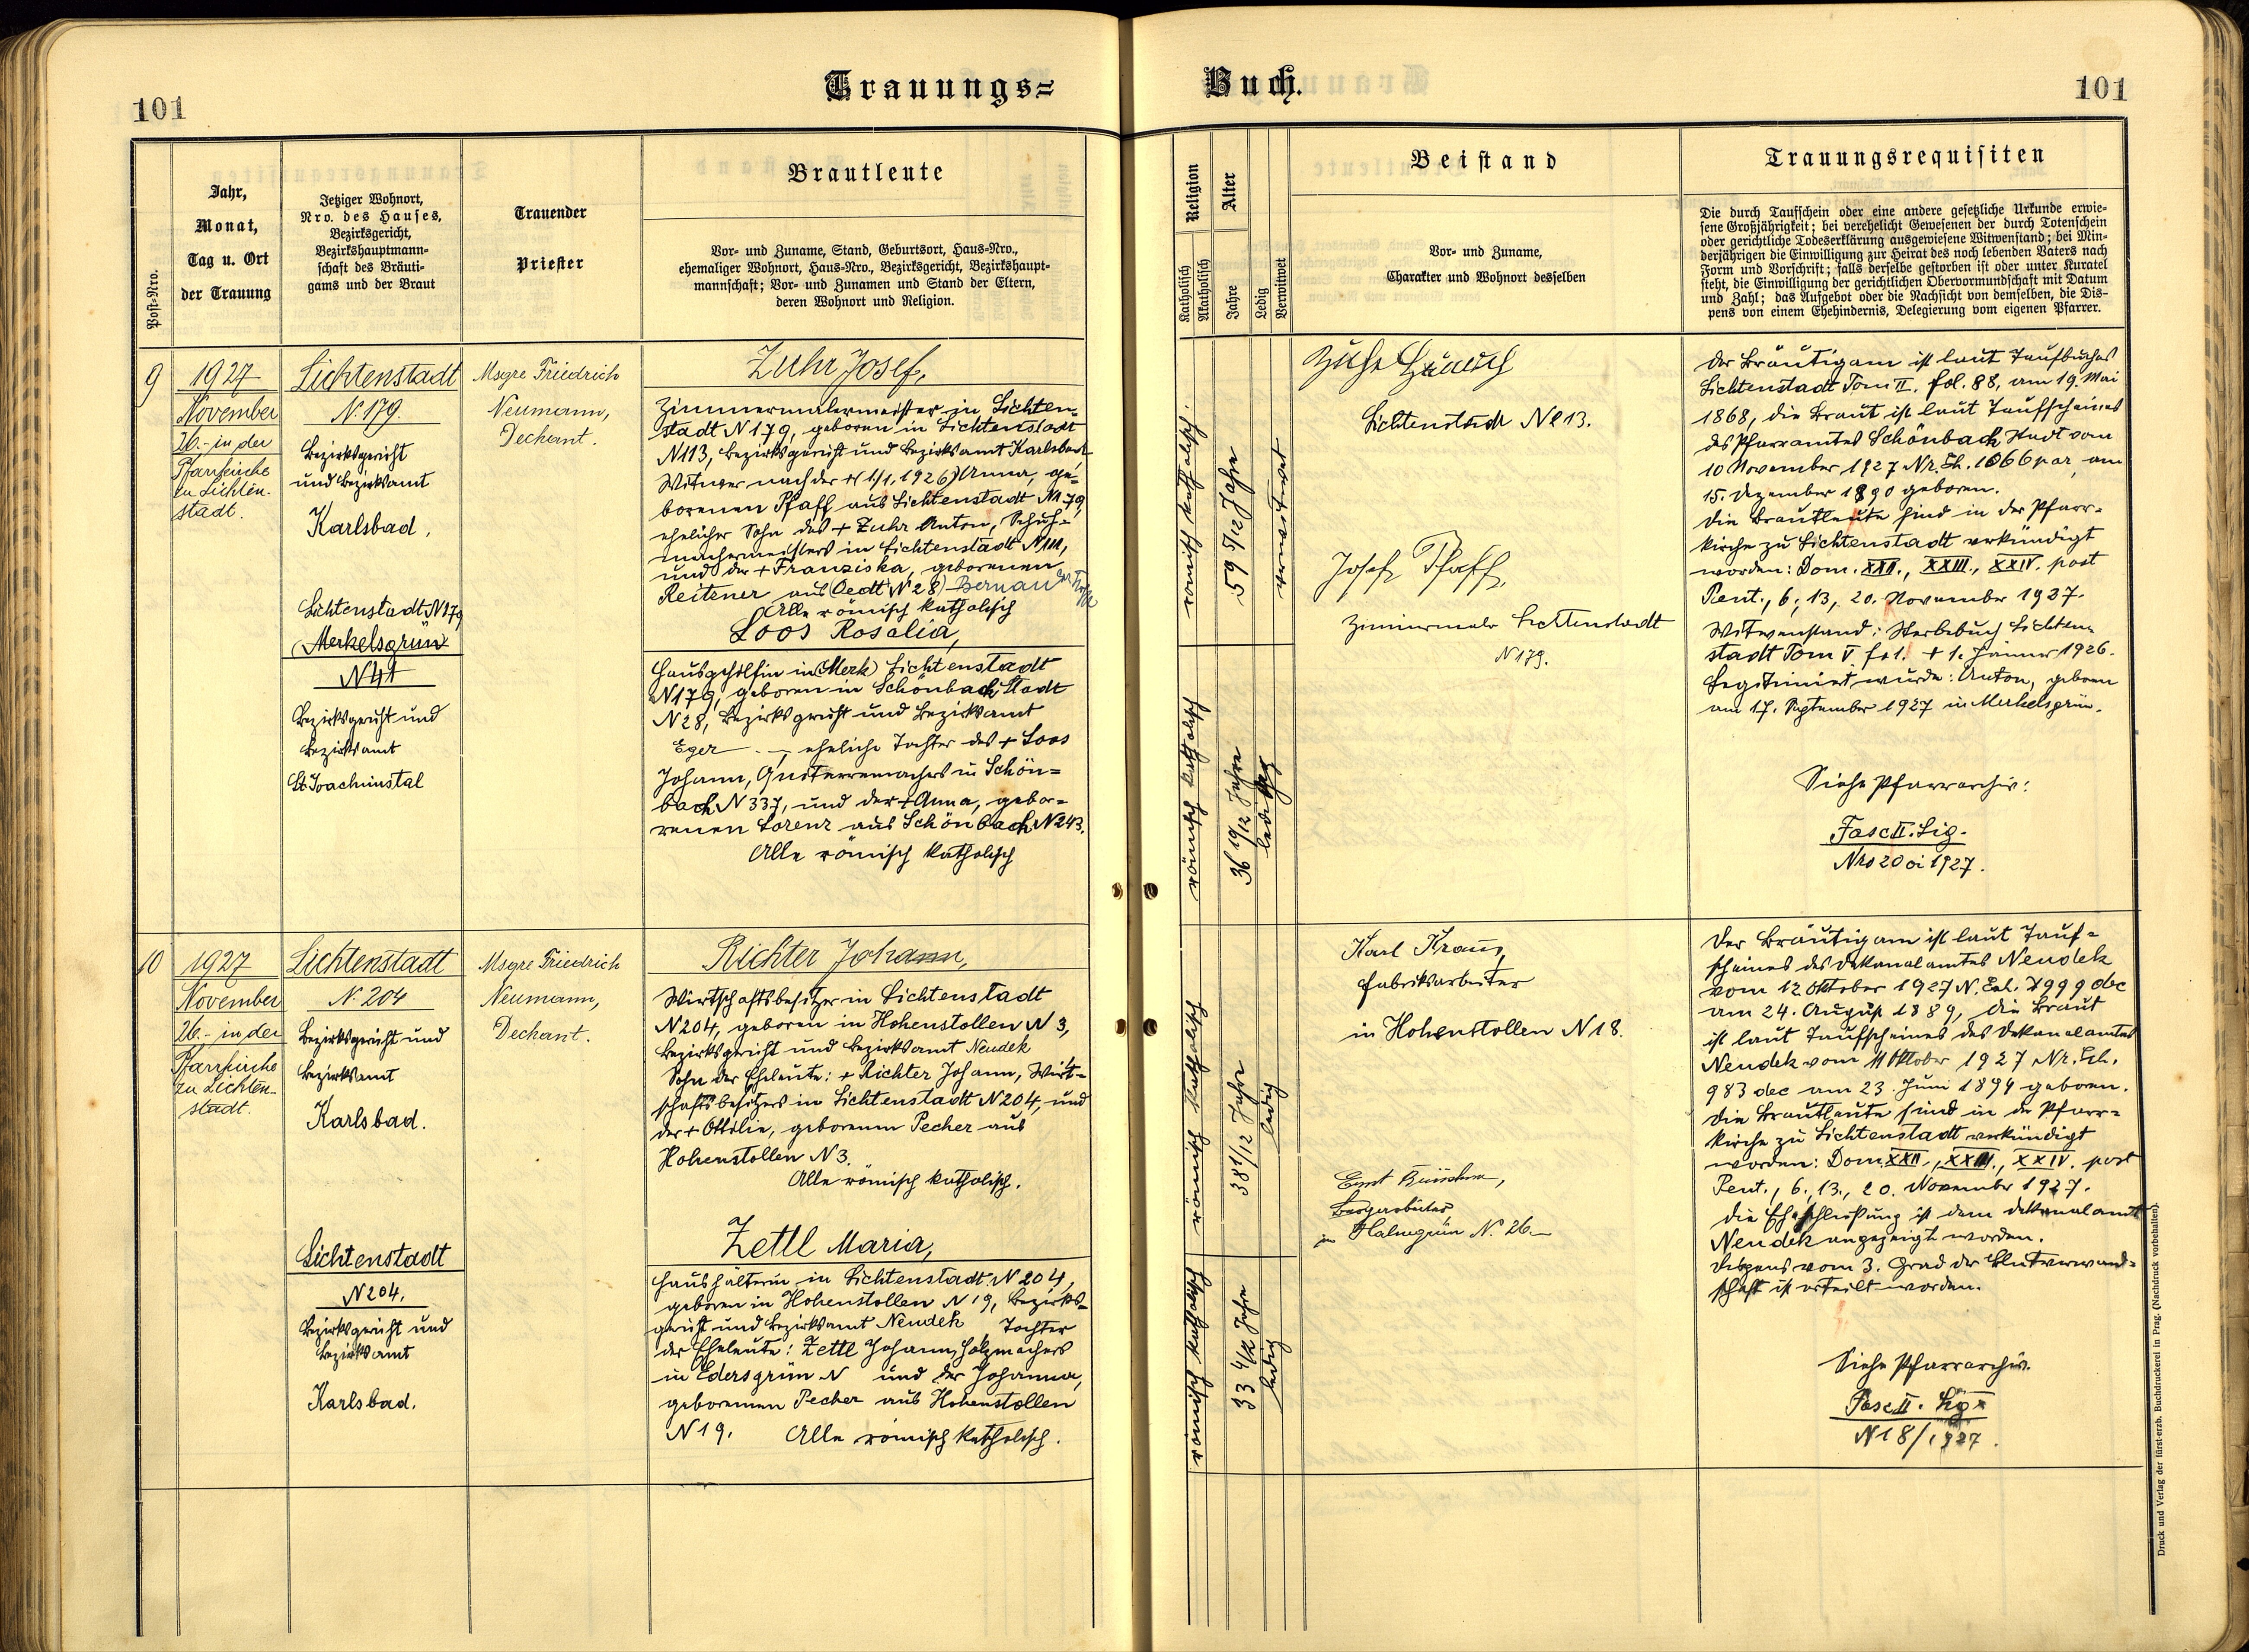 Trauungs=
Buch.
101
101
Post-Nro.
Jahr,
Monat,
Tag u. Ort
der Trauung
Jetziger Wohnort,
Nro. des Hauses,
Bezirksgericht,
Bezirkshauptmann-
schaft des Bräuti-
gams und der Braut
Trauender
Priester
Brautleute
Vor- und Zuname, Stand, Geburtsort, Haus-Nro.,
ehemaliger Wohnort, Haus-Nro., Bezirksgericht, Bezirkshaupt-
mannschaft; Vor- und Zunamen und Stand der Eltern,
deren Wohnort und Religion.
Religion
Katholisch
Akatholisch
Alter
Jahre
Ledig
Verwitwet
Beistand
Vor- und Zuname,
Charakter und Wohnort desselben
Trauungsrequisiten
Die durch Taufschein oder eine andere gesetzliche Urkunde erwie-
sene Großjährigkeit; bei verehelicht Gewesenen der durch Totenschein
oder gerichtliche Todeserklärung ausgewiesene Witwenstand; bei Min-
derjährigen die Einwilligung zur Heirat des noch lebenden Vaters nach
Form und Vorschrift; falls derselbe gestorben ist oder unter Kuratel
steht, die Einwilligung der gerichtlichen Obervormundschaft mit Datum
und Zahl; das Aufgebot oder die Nachsicht von demselben, die Dis-
pens von einem Ehehindernis, Delegierung vom eigenen Pfarrer.
9
1927
November
26.- in der
Pfarrkirche
zu Lichten-
stadt.
Lichtenstadt
N. 179.
Bezirksgericht
und Bezirksamt
Karlsbad.
Lichtenstadt N179
(Merkelsgrün
N 41
Bezirksgericht und
Bezirksamt
St. Joachimstal
Msgre Friedrich
Neumann,
Dechant.
Zuhr Josef,
Zimmermalermeister in Lichten-
stadt N 179, geboren in Lichtenstadt
N113, Bezirksgericht und Bezirksamt Karlsbad
Witwer nach der +(1/1. 1926) Anna, ge-
borenen Pfaff aus Lichtenstadt N179,
ehelicher Sohn des + Zuhr Anton, Schuh-
machermeisters in Lichtenstadt N111,
und der + Franziska, geborenen
Reitzner aus (Oedt N 28) Bernau
Alle römisch katholisch
Loos Rosalia,
Hausgehilfin in (Merk) Lichtenstadt
N179, geboren in Schönbach Stadt
N 28, Bezirksgericht und Bezirksamt
Eger, eheliche Tochter des + Loos
Johann, Guitarremachers in Schön=
bach N 337, und der + Anna, gebor=
renen Lorenz aus Schönbach N243.
Alle römisch katholisch
römisch katholisch.
59 5/12 Jahre
verwitwet
römisch katholisch
36 10/12 Jahre
ledig
Lichtenstadt N 113.
Josef Pfaff,
Zimmermaler Lichtenstadt
N179.
Der Bräutigam ist laut Taufbuches
Lichtenstadt Tom II. fol. 88, am 19. Mai
1868, die Braut ist laut Taufscheines
des Pfarramtes Schönbach Stadt vom
10 November 1927 Nr. Eh. 1066 par, am
15. Dezember 1890 geboren.
Die Brautleute sind in der Pfarr-
kirche zu Lichtenstadt verkündigt
worden: Dom. XXII., XXIII., XXIV. post
Pent., 6., 13, 20. November 1927.
Witwenstand: Sterbebuch Lichten-
stadt Tom V fol. + 1. Jänner 1926.
Legitimiert wurde: Anton, geboren
am 17. September 1927 in Merkelsgrün.
Siehe Pfarrarchiv:
Fasc II. Lig.
Nro 20 oi 1927.
10
1927
November
26.- in der
Pfarrkirche
zu Lichten-
stadt.
Lichtenstadt
N. 204
Bezirksgericht und
Bezirksamt
Karlsbad.
Lichtenstadt
N 204.
Bezirksgericht und
Bezirksamt
Karlsbad.
Msgre Friedrich
Neumann,
Dechant.
Richter Johann,
Wirtschaftsbesitzer in Lichtenstadt
N204, geboren in Hohenstollen N 3,
Bezirksgericht und Bezirksamt Neudek
Sohn der Eheleute: + Richter Johann, Wirt-
schaftsbesitzers in Lichtenstadt N204, und
der + Ottilie, geborenen Pecher aus
Hohenstollen N3.
Alle römisch katholisch.
Zettl Maria,
Haushälterin in Lichtenstadt N 204,
geboren in Hohenstollen N 19, Bezirks-
gericht und Bezirksamt Neudek Tochter
der Eheleute: Zettl Johann, Holzmachers
in Edersgrün N und der Johanna,
geborenen Pecher aus Hohenstollen
N 19. Alle römisch katholisch.
römisch katholisch
38 1/12 Jahre
ledig
römisch katholisch
33 4/12 Jahre
ledig
Karl Kraus,
Fabriksarbeiter
in Hohenstollen N 18.
Ernst
Bergarbeiter
in Halmgrün N. 26.
Der Bräutigam ist laut Tauf=
scheines des Dekanalamtes Neudek
vom 12 Oktober 1927 N. Exh. 999 dec
am 24. August 1889, die Braut
ist laut Taufscheines des Dekanalamtes
Neudek vom 11 Oktober 1927 Nr. Exh.
983 dec am 23. Juni 1894 geboren.
Die Brautleute sind in der Pfarr=
kirche zu Lichtenstadt verkündigt
worden: Dom. XXII., XXIII., XXIV. post
Pent., 6., 13., 20. November 1927.
Die Eheschließung ist dem Dekanalamt
Neudek angezeigt worden.
Dispens vom 3. Grad der Blutverwand=
schaft ist erteilt worden.
Siehe Pfarrarchiv.
Fasc II. Lig.
N 18/1927.
Druck und Verlag der fürst-erzb. Buchdruckerei in Prag. (Nachdruck vorbehalten).